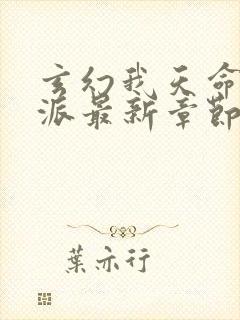 玄幻我天命
派最新章節
葉亦行